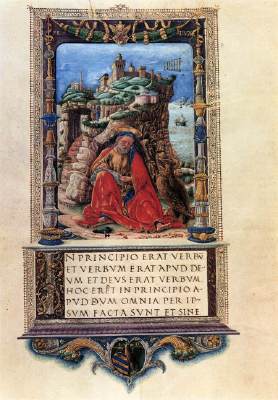 IN PRINCIPIO ERAT VERBV̄
ET VERBVM ERAT APVD DE-
VM ET DEVS ERAT VERBVM.
HOC ERAT IN PRINCIPIO A-
PVD DEVM OMNIA PER IP-
SVM FACTA SVNT ET SINE